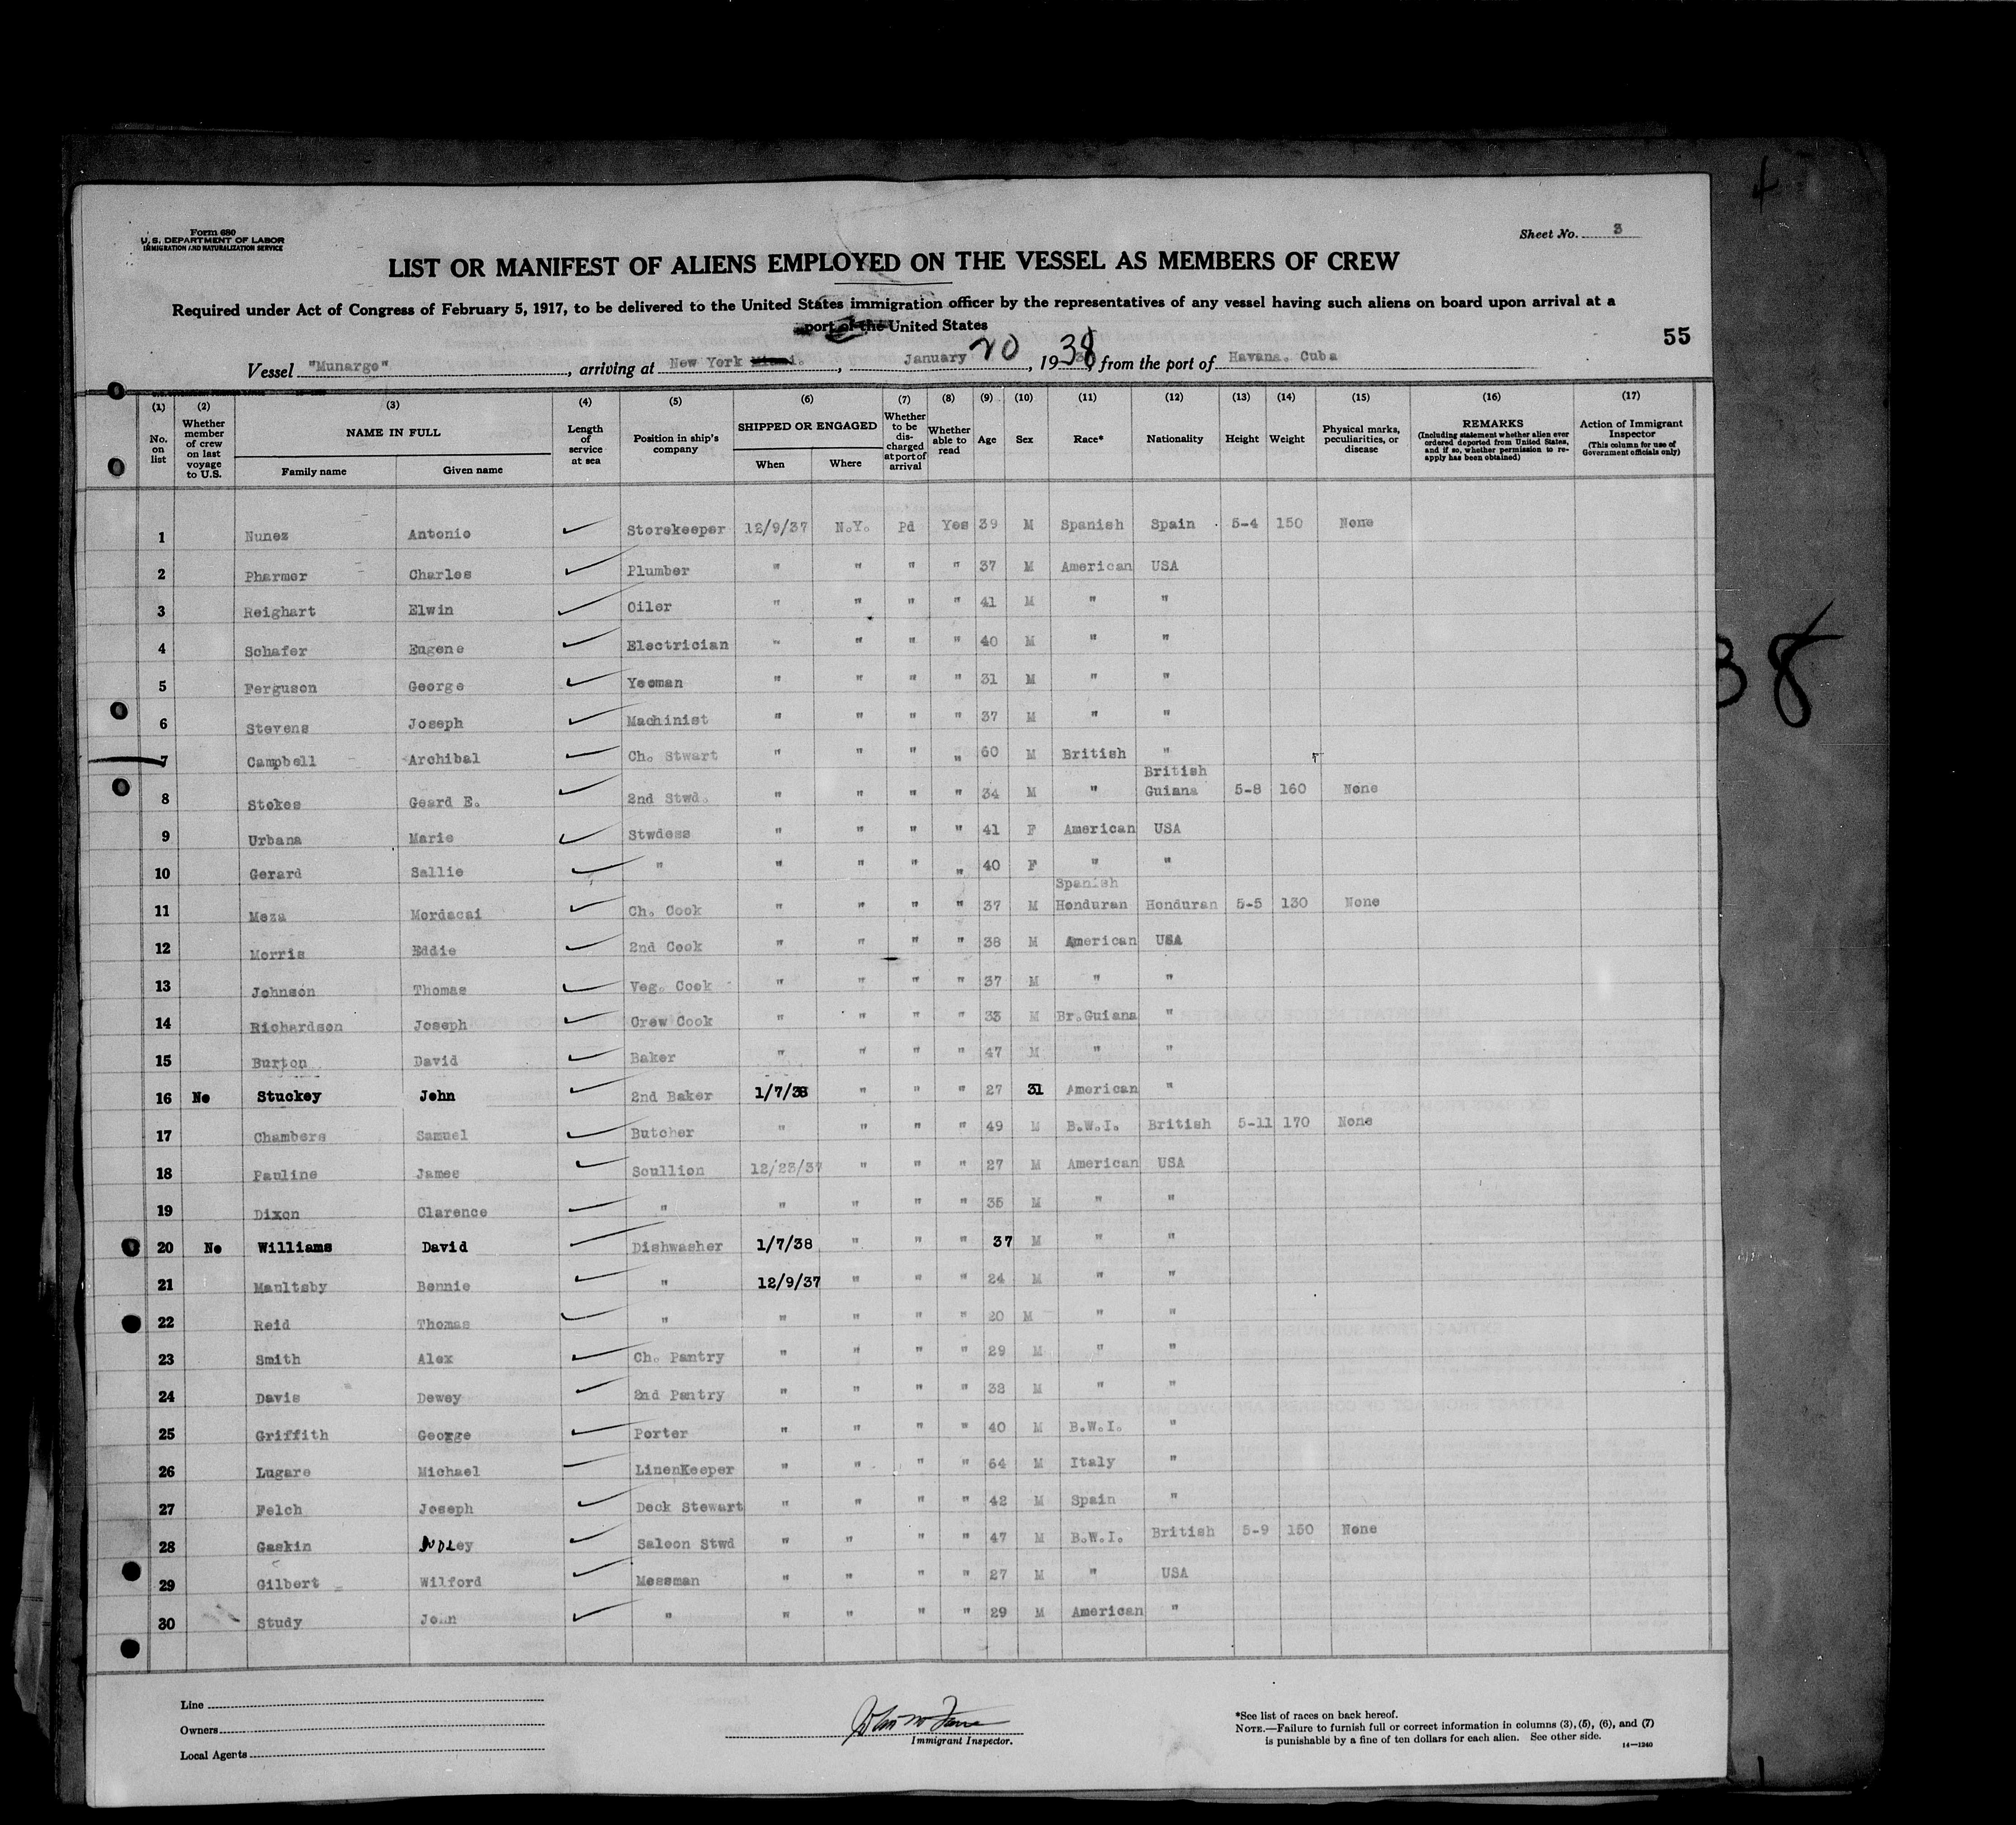 Form 680
U. S. DEPARTMENT OF LABOR
IMMIGRATION AND NATURALIZATION SERVICE
Sheet No. 3
LIST OR MANIFEST OF ALIENS EMPLOYED ON THE VESSEL AS MEMBERS OF CREW
Required under Act of Congress of February 5, 1917, to be delivered to the United States immigration officer by the representatives of any vessel having such aliens on board upon arrival at a
port of the United States
55
Vessel "Munargo", arriving at New York Miami., January 20, 1938, from the port of Havana. Cuba
(1) (2) (3) (4) (5) (6) (7) (8) (9) (10) (11) (12) (13) (14) (15) (16) (17)
No. on list
Whether member of crew on last voyage to U.S.
NAME IN FULL
Family name Given name
Length of service at sea
Position in ship's company
SHIPPED OR ENGAGED
When Where
Whether to be discharged at port of arrival
Whether able to read
Age
Sex
Race*
Nationality
Height
Weight
Physical marks, peculiarities, or disease
REMARKS
(Including statement whether alien ever ordered deported from United States, and if so, whether permission to reapply has been obtained)
Action of Immigrant Inspector
(This column for use of Government officials only)
1 Nunez Antonio Storekeeper 12/9/37 N.Y. Pd Yes 39 M Spanish Spain 5-4 150 None
2 Pharmer Charles Plumber " " " " 37 M American USA
3 Reighart Elwin Oiler " " " " 41 M " "
4 Schafer Eugene Electrician " " " " 40 M " "
5 Ferguson George Yeoman " " " " 31 M " "
6 Stevens Joseph Machinist " " " " 37 M " "
7 Campbell Archibal Ch. Stwart " " " " 60 M British "
8 Stokes Geard E. 2nd Stwd. " " " " 34 M " British Guiana 5-8 160 None
9 Urbana Marie Stwdess " " " " 41 F American USA
10 Gerard Sallie " " " " " 40 F " "
11 Meza Mordacai Ch. Cook " " " " 37 M Spanish Honduran Honduran 5-5 130 None
12 Morris Eddie 2nd Cook " " " " 38 M American USA
13 Johnson Thomas Veg. Cook " " " " 37 M " "
14 Richardson Joseph Crew Cook " " " " 33 M Br.Guiana "
15 Burton David Baker " " " " 47 M " "
16 No Stuckey John 2nd Baker 1/7/38 " " " 27 31 American "
17 Chambers Samuel Butcher " " " " 49 M B.W.I. British 5-11 170 None
18 Pauline James Scullion 12/23/37 " " " 27 M American USA
19 Dixon Clarence " " " " " 35 M " "
20 No Williams David Dishwasher 1/7/38 " " " 37 M " "
21 Manltsby Bennie " 12/9/37 " " " 24 M " "
22 Reid Thomas " " " " " 20 M " "
23 Smith Alex Ch. Pantry " " " " 29 M " "
24 Davis Dewey 2nd Pantry " " " " 32 M " "
25 Griffith George Porter " " " " 40 M B.W.I. "
26 Lugare Michael LinenKeeper " " " " 64 M Italy "
27 Felch Joseph Deck Stewart " " " " 42 M Spain "
28 Gaskin Dudley Saloon Stwd " " " " 47 M B.W.I. British 5-9 150 None
29 Gilbert Wilford Messman " " " " 27 M " USA
30 Study John " " " " " 29 M American "
Line
Owners
Local Agents
Immigrant Inspector.
*See list of races on back hereof.
NOTE.—Failure to furnish full or correct information in columns (3), (5), (6), and (7)
is punishable by a fine of ten dollars for each alien. See other side.
14—1240
38